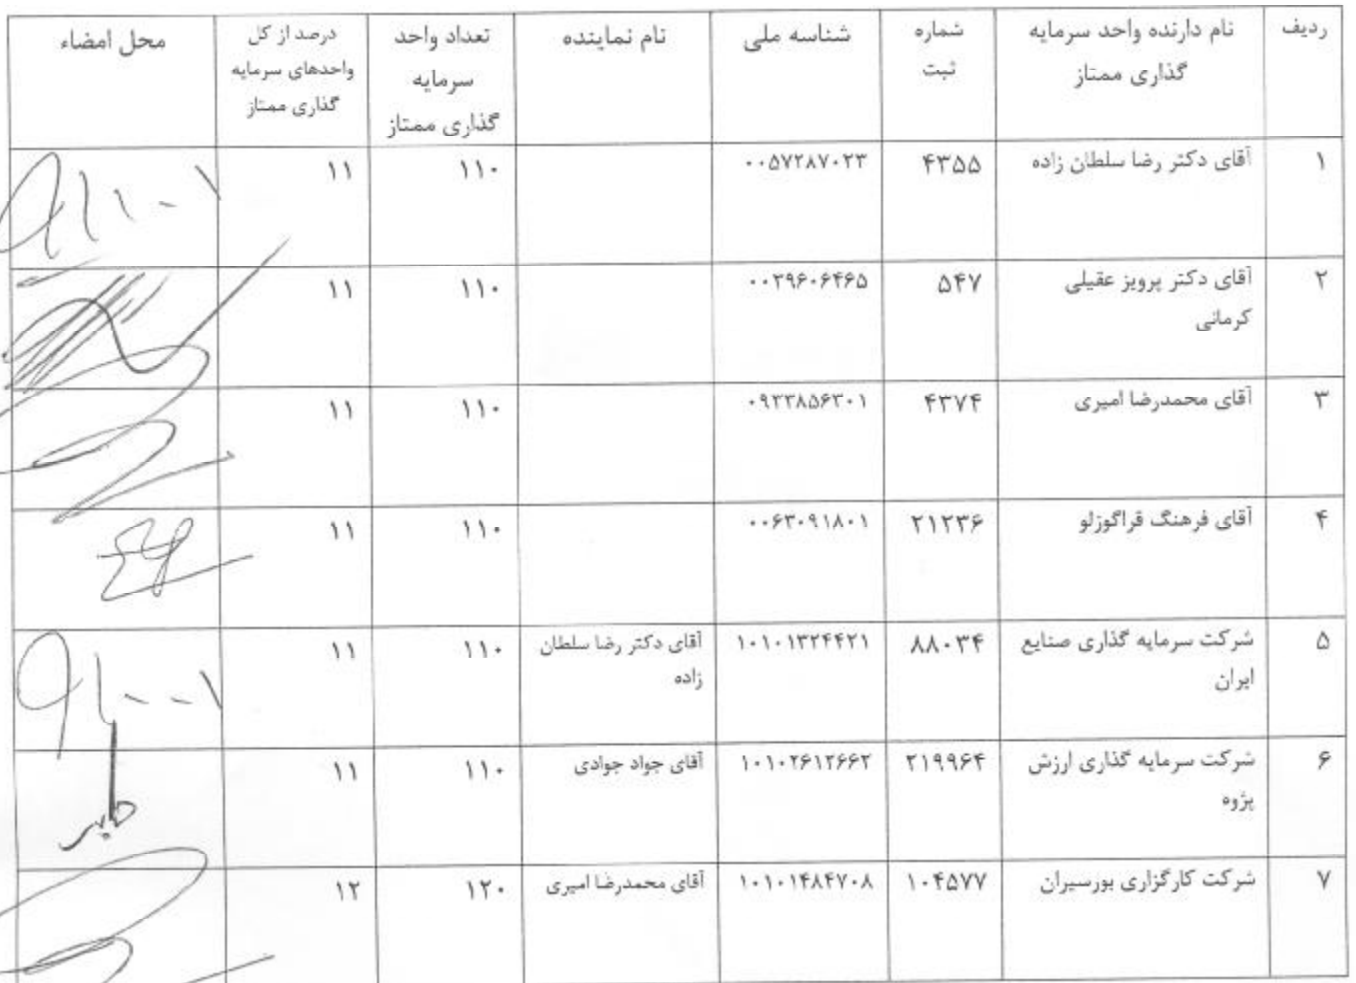 ردیف نام دارنده واحد سرمایه گذاری ممتاز شماره ثبت شناسه ملی نام نماینده تعداد واحد سرمایه گذاری ممتاز درصد از کل واحدهای سرمایه گذاری ممتاز محل امضاء
۱ آقای دکتر رضا سلطان زاده ۴۳۵۵ ۰۰۵۷۲۸۷۰۲۳ ۱۱۰ ۱۱
۲ آقای دکتر پرویز عقیلی کرمانی ۵۴۷ ۰۰۳۹۶۰۶۴۶۵ ۱۱۰ ۱۱
۳ آقای محمدرضا امیری ۴۳۷۴ ۰۹۳۳۸۵۶۳۰۱ ۱۱۰ ۱۱
۴ آقای فرهنگ قراگوزلو ۲۱۲۳۶ ۰۰۶۳۰۹۱۸۰۱ ۱۱۰ ۱۱
۵ شرکت سرمایه گذاری صنایع ایران ۸۸۰۳۴ ۱۰۱۰۱۳۲۴۴۲۱ آقای دکتر رضا سلطان زاده ۱۱۰ ۱۱
۶ شرکت سرمایه گذاری ارزش پژوه ۲۱۹۹۶۴ ۱۰۱۰۲۶۱۲۶۶۲ آقای جواد جوادی ۱۱۰ ۱۱
۷ شرکت کارگزاری بورسیران ۱۰۴۵۷۷ ۱۰۱۰۱۴۸۴۷۰۸ آقای محمدرضا امیری ۱۲۰ ۱۲